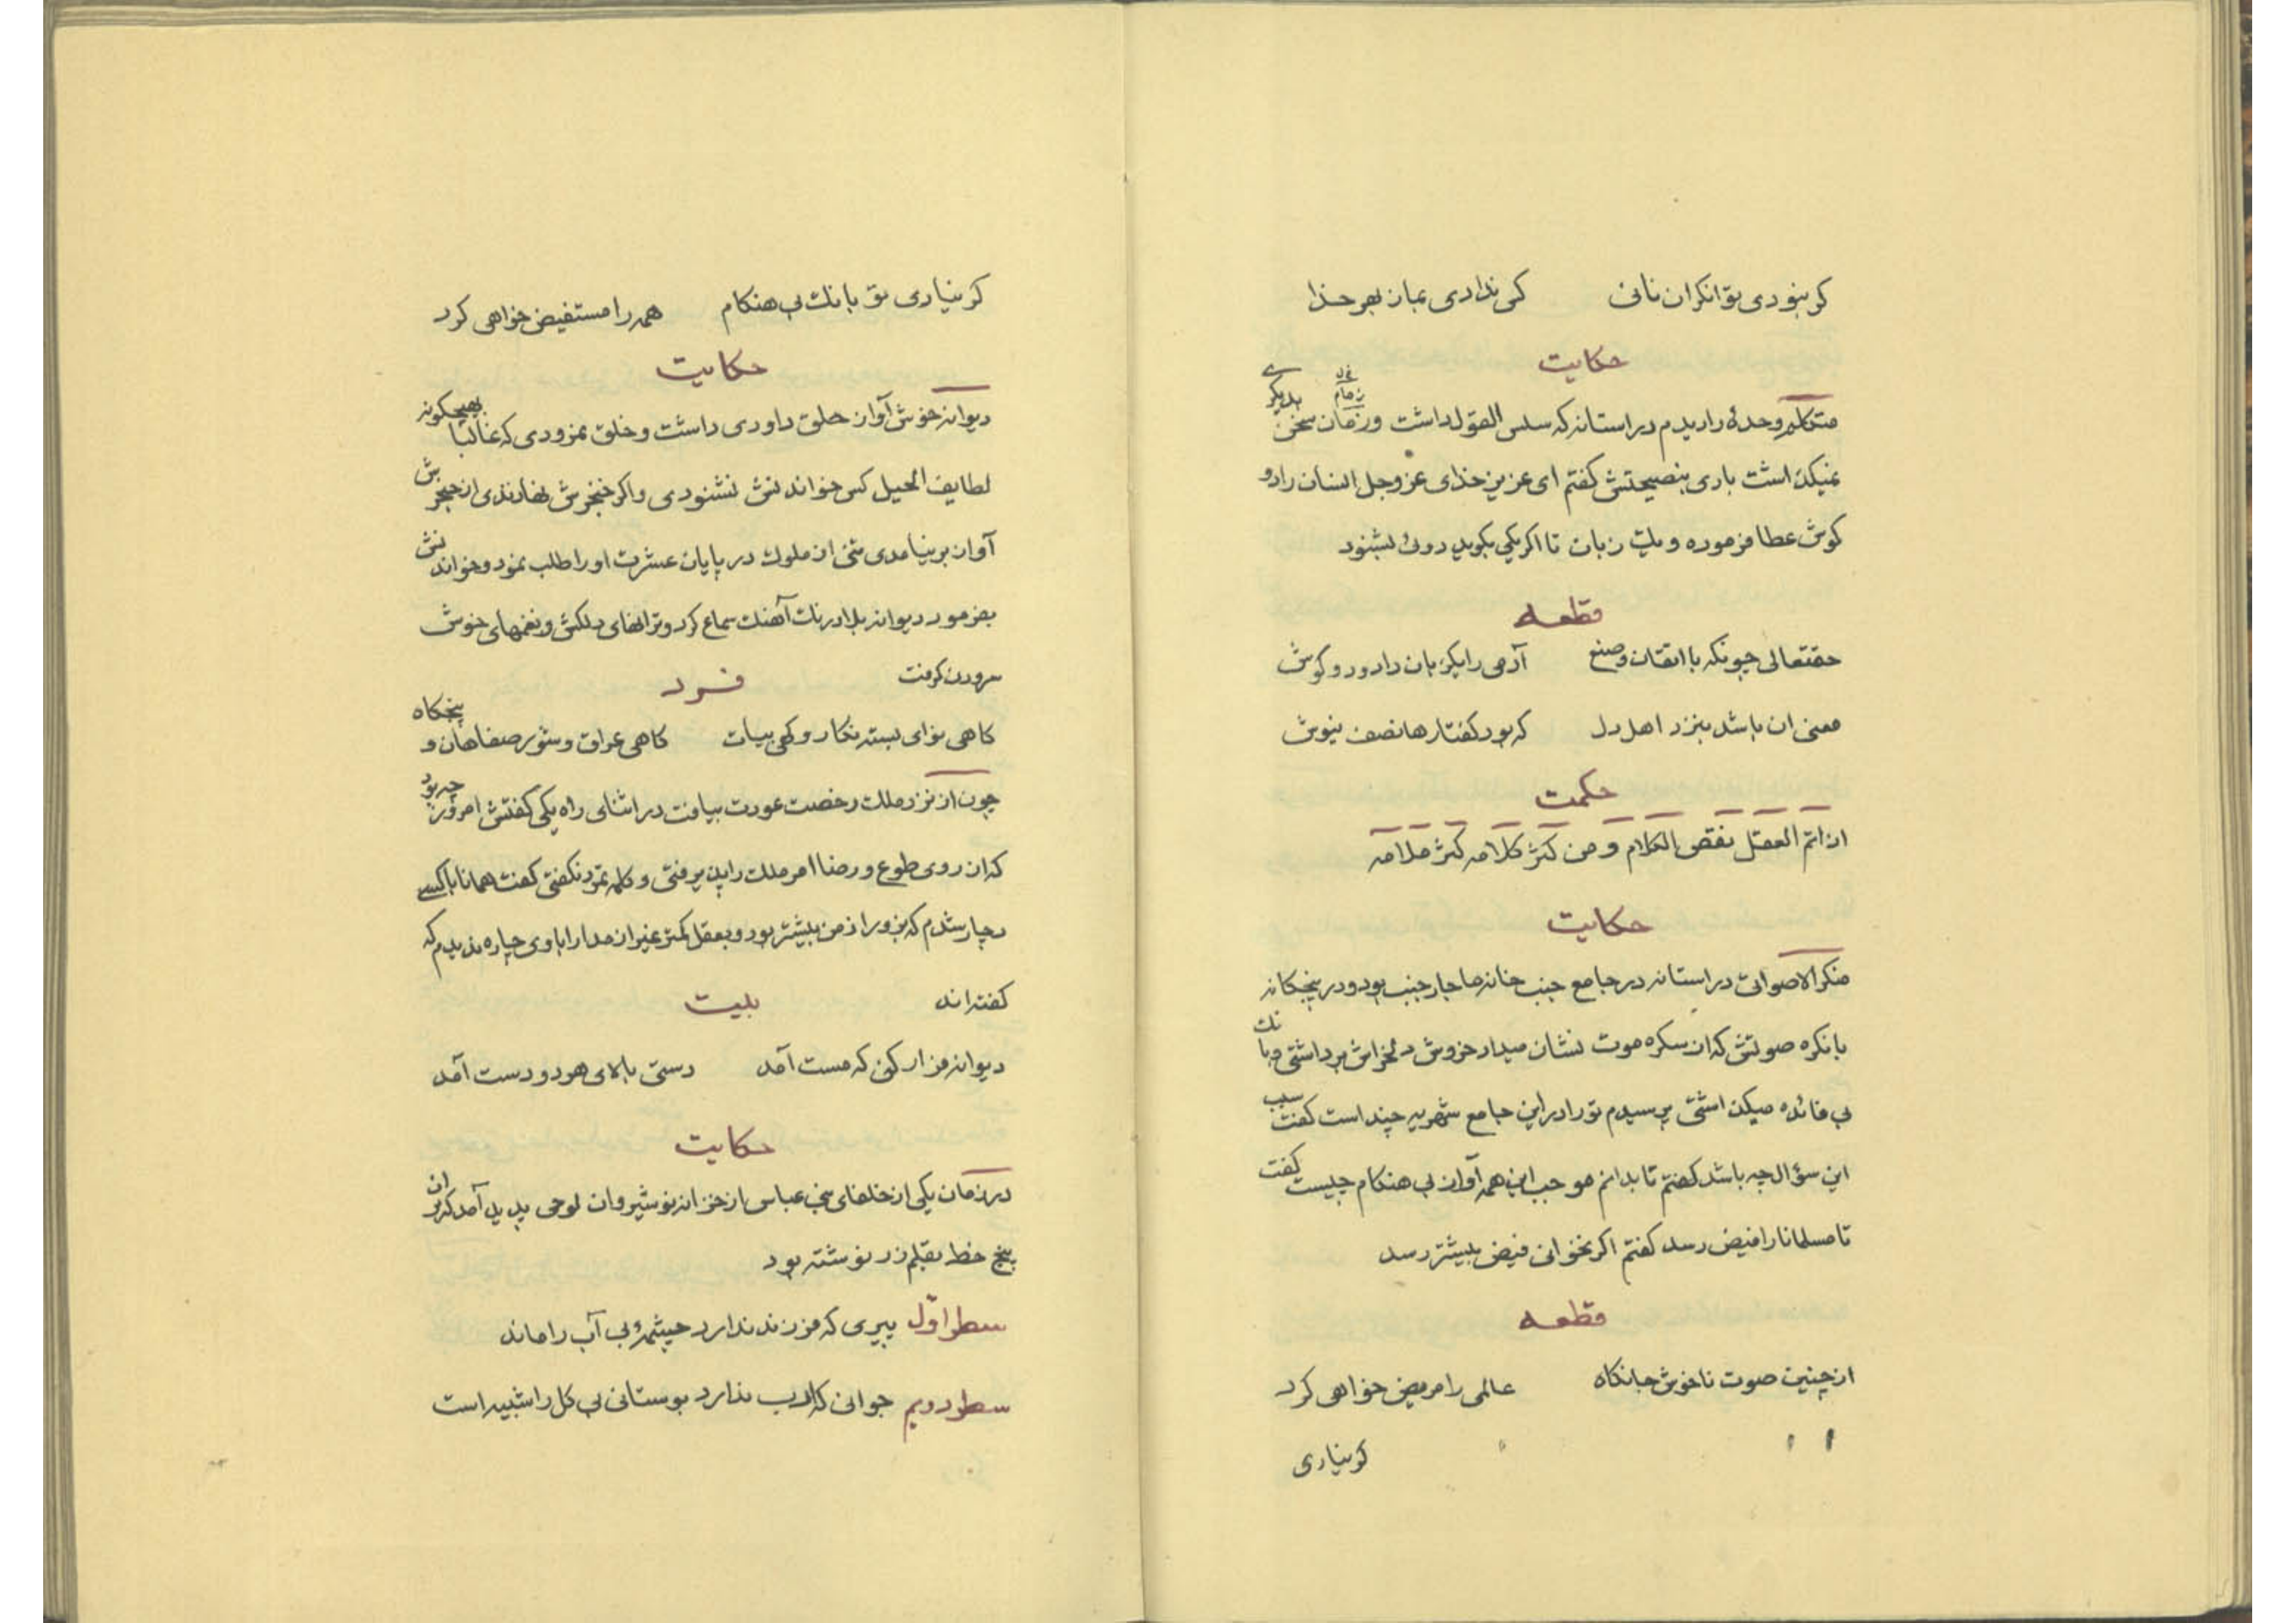 کر بنودی توانکران نانی کی ندادی بمان بهر خدا
حکایت
متکلم وحدهٔ را دیدم در استانه که سلس القول داشت و زمان سخن بدیکری
نمیکذاشت باری بنصیحتش کفتم ای عزیز خدای عز وجل انسان را دو
کوش عطا فرموده و یک زبان تا اکر یکی بکوید دوئ بشنود
قطعه
حقتعالی چونکه با اتقان و صنع آدمی را یکزبان داد و دو کوش
معنی ان باشد بنزد اهل دل که بود کفتارها نصف نیوش
حکمت
اذا تم العقل نقص الکلام و من کثر کلامه کثر ملامه
حکایت
منکر الاصواتی در استانه در جامع جنب خانه ما جار جنب بود و در پنجکانه
بانکره صوتش که از سکره موت نشان میداد خروش دلخراش برداشتی و بانک
بی فائده میکذاشتی پرسیدم تو را در این جامع شهریه چند است کفت سبب
این سؤال چه باشد کفتم تا بدانم موجب این همه آواز بی هنکام چیست کفت
تا مسلمانا را فیض رسد کفتم اکر نخوانی فیض بیشتر رسد
قطعه
از چنین صوت ناخوش جانکاه عالمی را مریض خواهی کرد
کر نیاری
کر نیاری تو بانک بی هنکام همه را مستفیض خواهی کرد
حکایت
دیوانه خوش آواز حلق داودی داشت و خلق نمرودی که غالبا بهیچکونه
لطایف الحیل کس خواندنش نشنودی و اکر خنجرش نهادندی از حنجرش
آواز بر نیامدی شبی از ملوک در پایان عشرت او را طلب نمود و خواندنش
بفرمود دیوانه بلا درنک آهنک سماع کرد و ترانهای دلکش و نغمهای خوش
سرودن کرفت
فرد
کاهی نوای بسته نکار و کهی بیات کاهی عراق و شور صفاهان و پنجکاه
چون از نزد ملک رخصت عودت بیافت در اثنای راه یکی کفتش امروز چه بود
که از روی طوع و رضا امر ملک را پذیرفتی و کلمه تمرد نکفتی کفت همانا با کسی
دچار شدم که بزور از من بیشتر بود و بعقل کمتر غیر از مدارا با وی چاره ندیدم که
کفته اند
بیت
دیوانه فرار کن که مست آمد دستی بالای هر دو دست آمد
حکایت
در زمان یکی از خلفای بنی عباس از خزانه نوشیروان لوحی پدید آمد که بر ان
پنج خط بقلم زر نوشته بود
سطر اوّل پیری که فرزند ندارد چشمهٔ بی آب را ماند
سطر دویم جوانی که ادب ندارد بوستانی بی کل را شبیه است